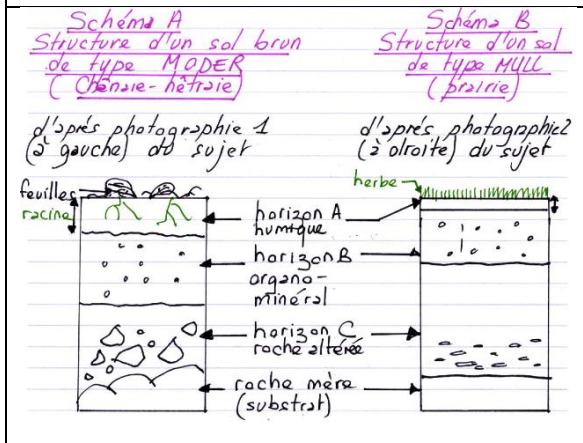 Schéma A
Structure d'un sol brun
de type MODER
(Chênaie-hêtraie)
d'après photographie 1
(à gauche) du sujet
feuilles
racine
Schéma B
Structure d'un sol
de type MULL
(prairie)
d'après photographie 2
(à droite) du sujet
herbe
horizon A
humique
horizon B
organo-
minéral
horizon C
roche altérée
roche mère
(substrat)